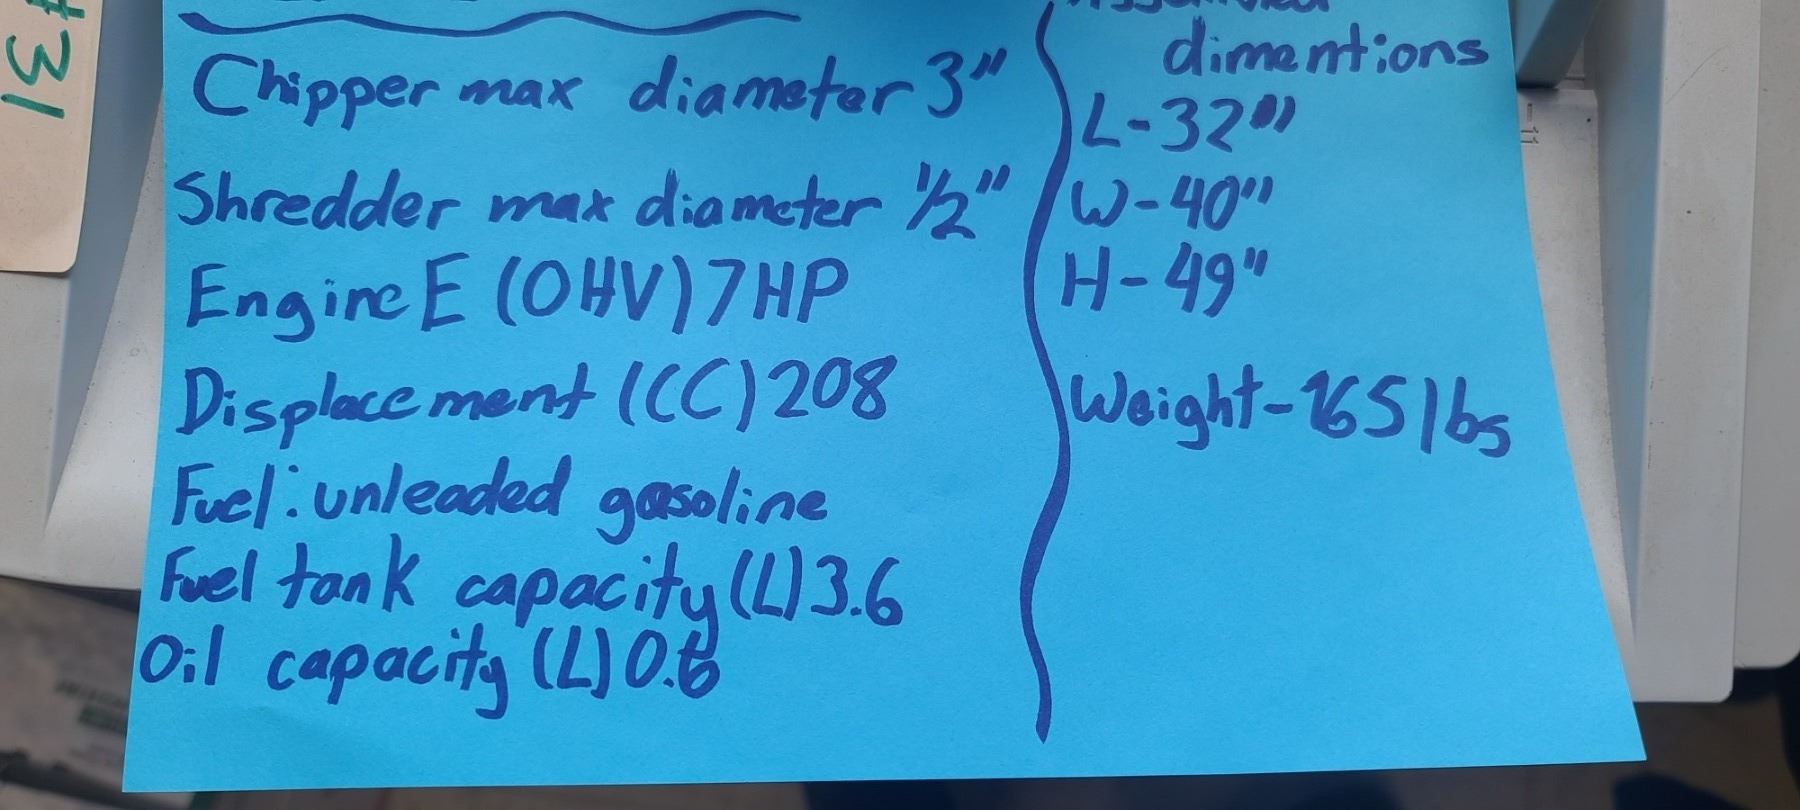 #31
Chipper max diameter 3"
Shredder max diameter 1/2"
Engine E (OHV) 7HP
Displacement (CC) 208
Fuel: unleaded gasoline
Fuel tank capacity (L) 3.6
Oil capacity (L) 0.6
Assembled
dimentions
L-32"
W-40"
H-49"
Weight-165 lbs